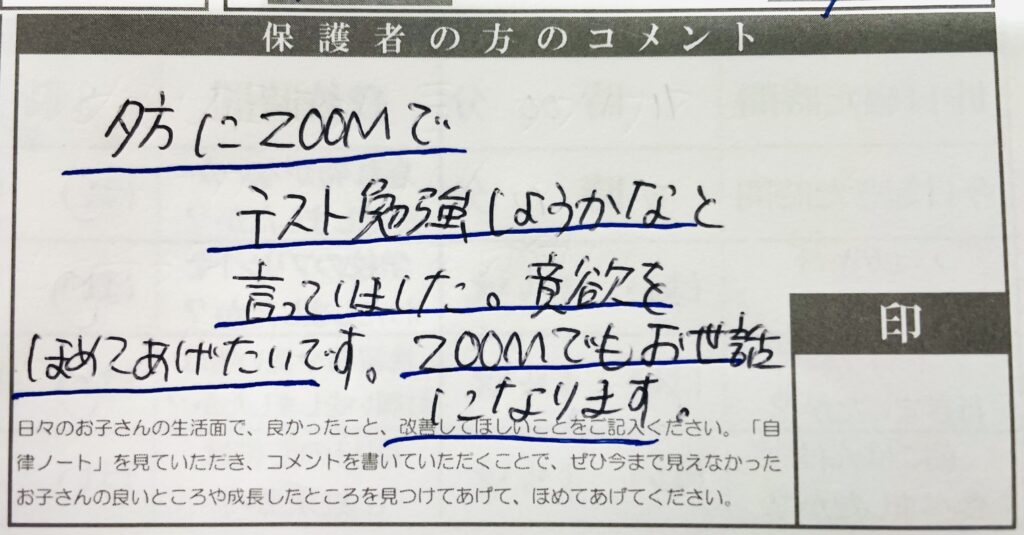 保護者の方のコメント
夕方にZOOMで
テスト勉強しようかなと
言っていました。意欲を
ほめてあげたいです。ZOOMでもお世話
になります。
印
日々のお子さんの生活面で、良かったこと、改善してほしいことをご記入ください。「自
律ノート」を見ていただき、コメントを書いていただくことで、ぜひ今まで見えなかった
お子さんの良いところや成長したところを見つけてあげて、ほめてあげてください。